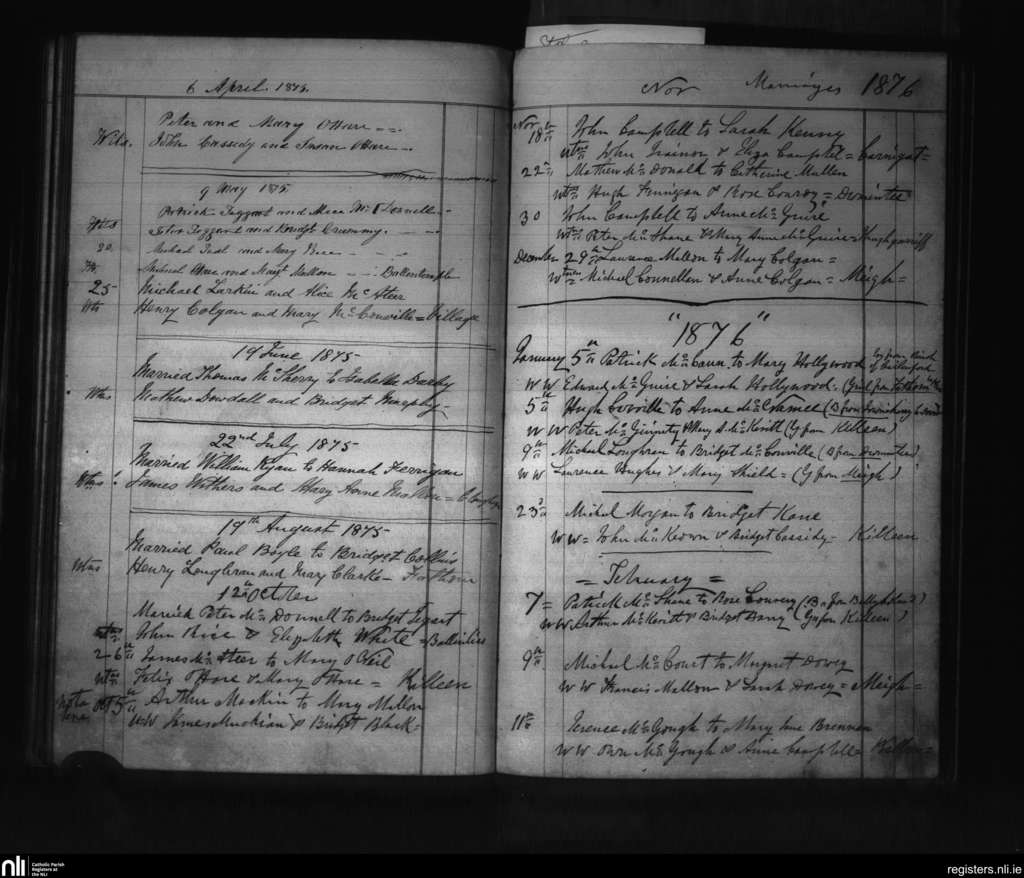 6 April. 1875.
Peter and Mary O'Hare
Wits. John Cassidy and Susan O'Hare
9 May 1875
Patrick Taggart and Alice Mc
Wtns John Taggart and Bridget Crummy.
20 Michael and Mary Rice
Michael O'Hare and Margt Mallon Ballintemple
25 Michael Larkin and Alice McAteer
Wtns Henry Colgan and Mary McConville = Village
19 June 1875
Married Thomas McSherry to Isabella Darby
Wtns Mathew Dowdall and Bridget Murphy
22nd July 1875
Married William Ryan to Hannah Ferrigan
Wtns: James Withers and Mary Anne
19th August 1875
Married Paul Boyle to Bridget Collins
Wtns Henry Loughran and Mary Clarke - Fathom
12th October
Married Peter McDonnell to Bridget
wtns John Rice & Elizabeth White =
26th James McAteer to Mary O'Neil
wtns Felix O'Hare & Mary O'Hare = Killeen
Oct 5th Arthur Mackin to Mary Mallon
WW James & Bridget Black =
Nov Marriages 1876
Nov 18th John Campbell to Sarah Kenny
wtns John Trainor & Eliza Campbel = Carrigat =
22nd Mathew McDonald to Catherine Mullen
wtns Hugh Finnigan & Rose Conroy =
30 John Campbell to Anne McGuire
wtns Peter McShane & Mary Anne McGuire =
December 29th Lawrence Mallon to Mary Colgan =
witnes = Michael Connellan & Anne Colgan = Meigh =
"1876"
January 5th Patrick McCann to Mary Hollywood
WW Edward McGuire & Sarah Hollywood.
5th Hugh Coville to Anne
WW Peter McGinnity & Mary A McKevitt (G from Killeen)
9th Michael Loughran to Bridget McConville
WW Laurence Hughes & Mary Shield = (G from Meigh)
23d Michael Morgan to Bridget Kane
WW = John McKeown & Bridget Cassidy = Killeen
= February =
7 = Patrick McShane to Rose Convery
WW Arthur McKevitt & Bridget (G from Killeen)
9th Michael McCourt to Margret Dovey
WW Francis Mallon & Sarah Dovey = Meigh =
11th Terence McGough to Mary Ane Brennan
WW Own McGough & Anne Campbell = Killeen =
nli
Catholic Parish
Registers at
the NLI
registers.nli.ie